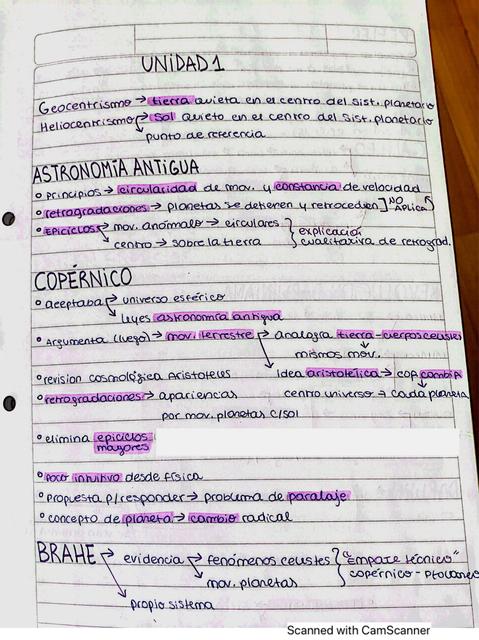 UNIDAD 1
Geocentrismo → tierra quieta en el centro del sist. planetario
Heliocentrismo → sol quieto en el centro del sist. planetario
↳ punto de referencia
ASTRONOMÍA ANTIGUA
• Principios → circularidad de mov. y constancia de velocidad
• retrogradaciones → planetas se detienen y retroceden ] NO APLICA
• Epiciclos → mov. anómalo → circulares } explicación
→ centro → sobre la tierra } cualitativa de retrograd.
COPÉRNICO
• aceptaba → universo esférico
→ leyes astronomía antigua
• Argumenta (luego) → mov. terrestre → analogía tierra-cuerpos celestes
↓ mismos mov.
• revision cosmológica Aristóteles → idea aristotélica → cop cambia
• retrogradaciones → apariencias centro universo → cada planeta
por mov. planetas c/sol
• elimina epiciclos
mayores
• poco intuitivo desde física
• Propuesta p/responder → problema de paralaje
• concepto de planeta → cambio radical
BRAHE → evidencia → fenómenos celestes } "empate técnico"
→ mov. planetas } copérnico -
→ propio sistema
Scanned with CamScanner